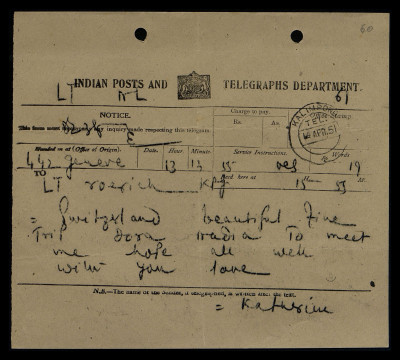 60
LT NL 61
INDIAN POSTS AND TELEGRAPHS DEPARTMENT.
NOTICE.
This form must accompany any inquiry made respecting this telegram.
Charge to pay.
Rs. As.
KALIMPONG
TEL
APR. 51
Handed in at (Office of Origin). Date. Hour. Minute. Service Instructions. Words.
442 geneve 13 13 15 19
TO
LT roerich Kpg
Recd here at 15 H. 55 M.
= Switzerland beautiful fine
Trip Dora radia To meet
me hope all well
with you love
N.B.—The name of the sender, if telegraphed, is written after the text.
= Katherine